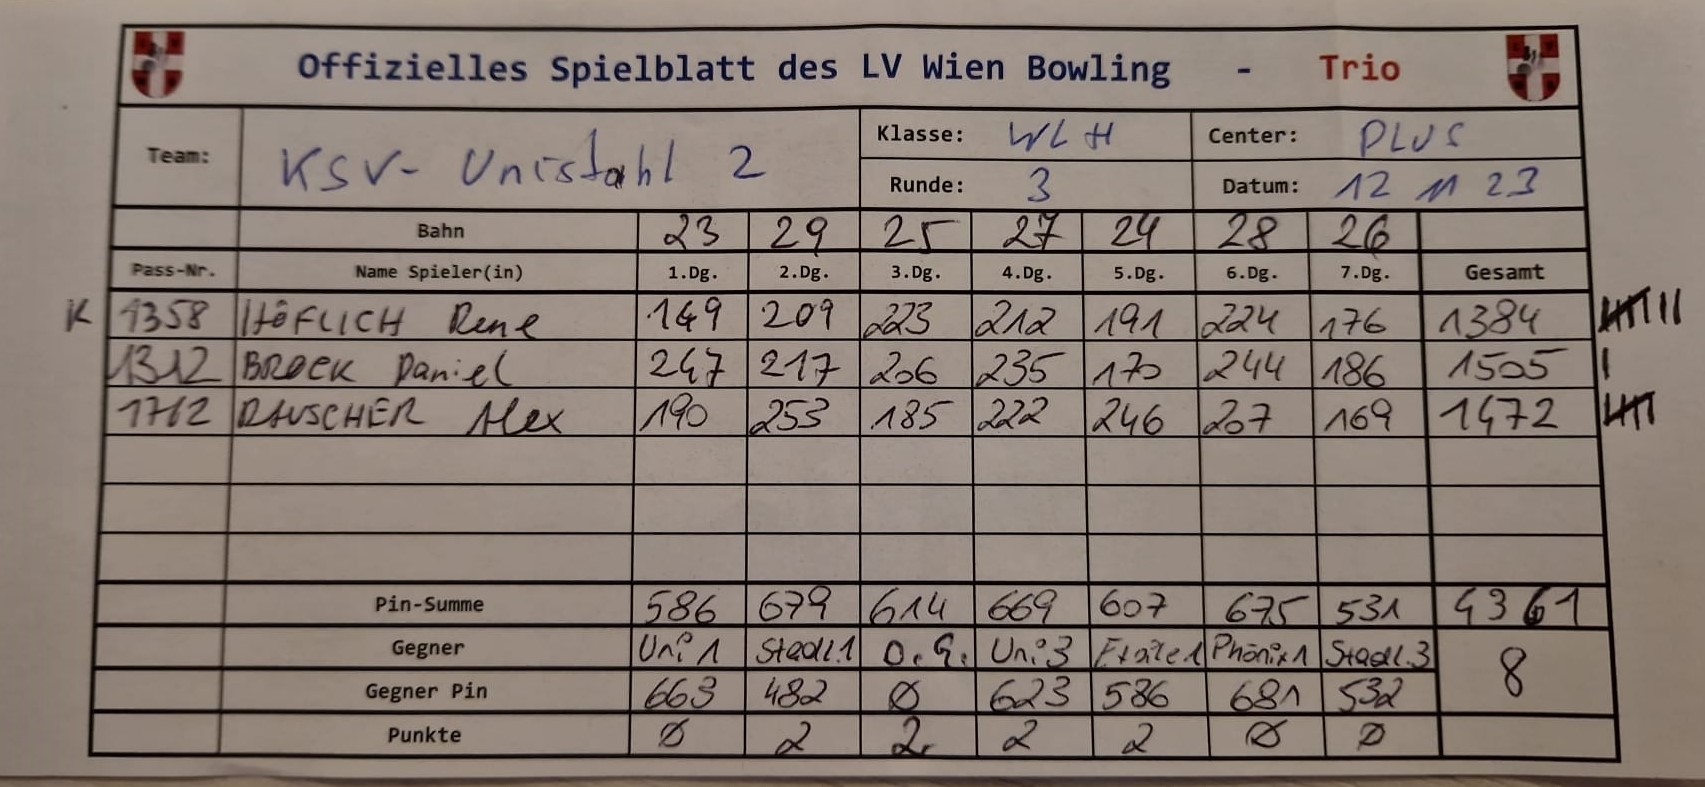 Offizielles Spielblatt des LV Wien Bowling - Trio
Team: KSV- Unistahl 2 Klasse: WLH Center: PLUS
Runde: 3 Datum: 12 11 23
Bahn 23 29 25 27 24 28 26
Pass-Nr. Name Spieler(in) 1.Dg. 2.Dg. 3.Dg. 4.Dg. 5.Dg. 6.Dg. 7.Dg. Gesamt
K 1358 HÖFLICH Rene 149 209 223 212 191 224 176 1384
1312 BROCK Daniel 247 217 206 235 170 244 186 1505
1712 RAUSCHER Alex 190 253 185 222 246 207 169 1472
Pin-Summe 586 679 614 669 607 675 531 4361
Gegner Uni 1 Stadl.1 O.G. Uni 3 Phönix1 Stadl.3
Gegner Pin 663 482 Ø 623 586 681 532 8
Punkte Ø 2 2 2 2 Ø Ø